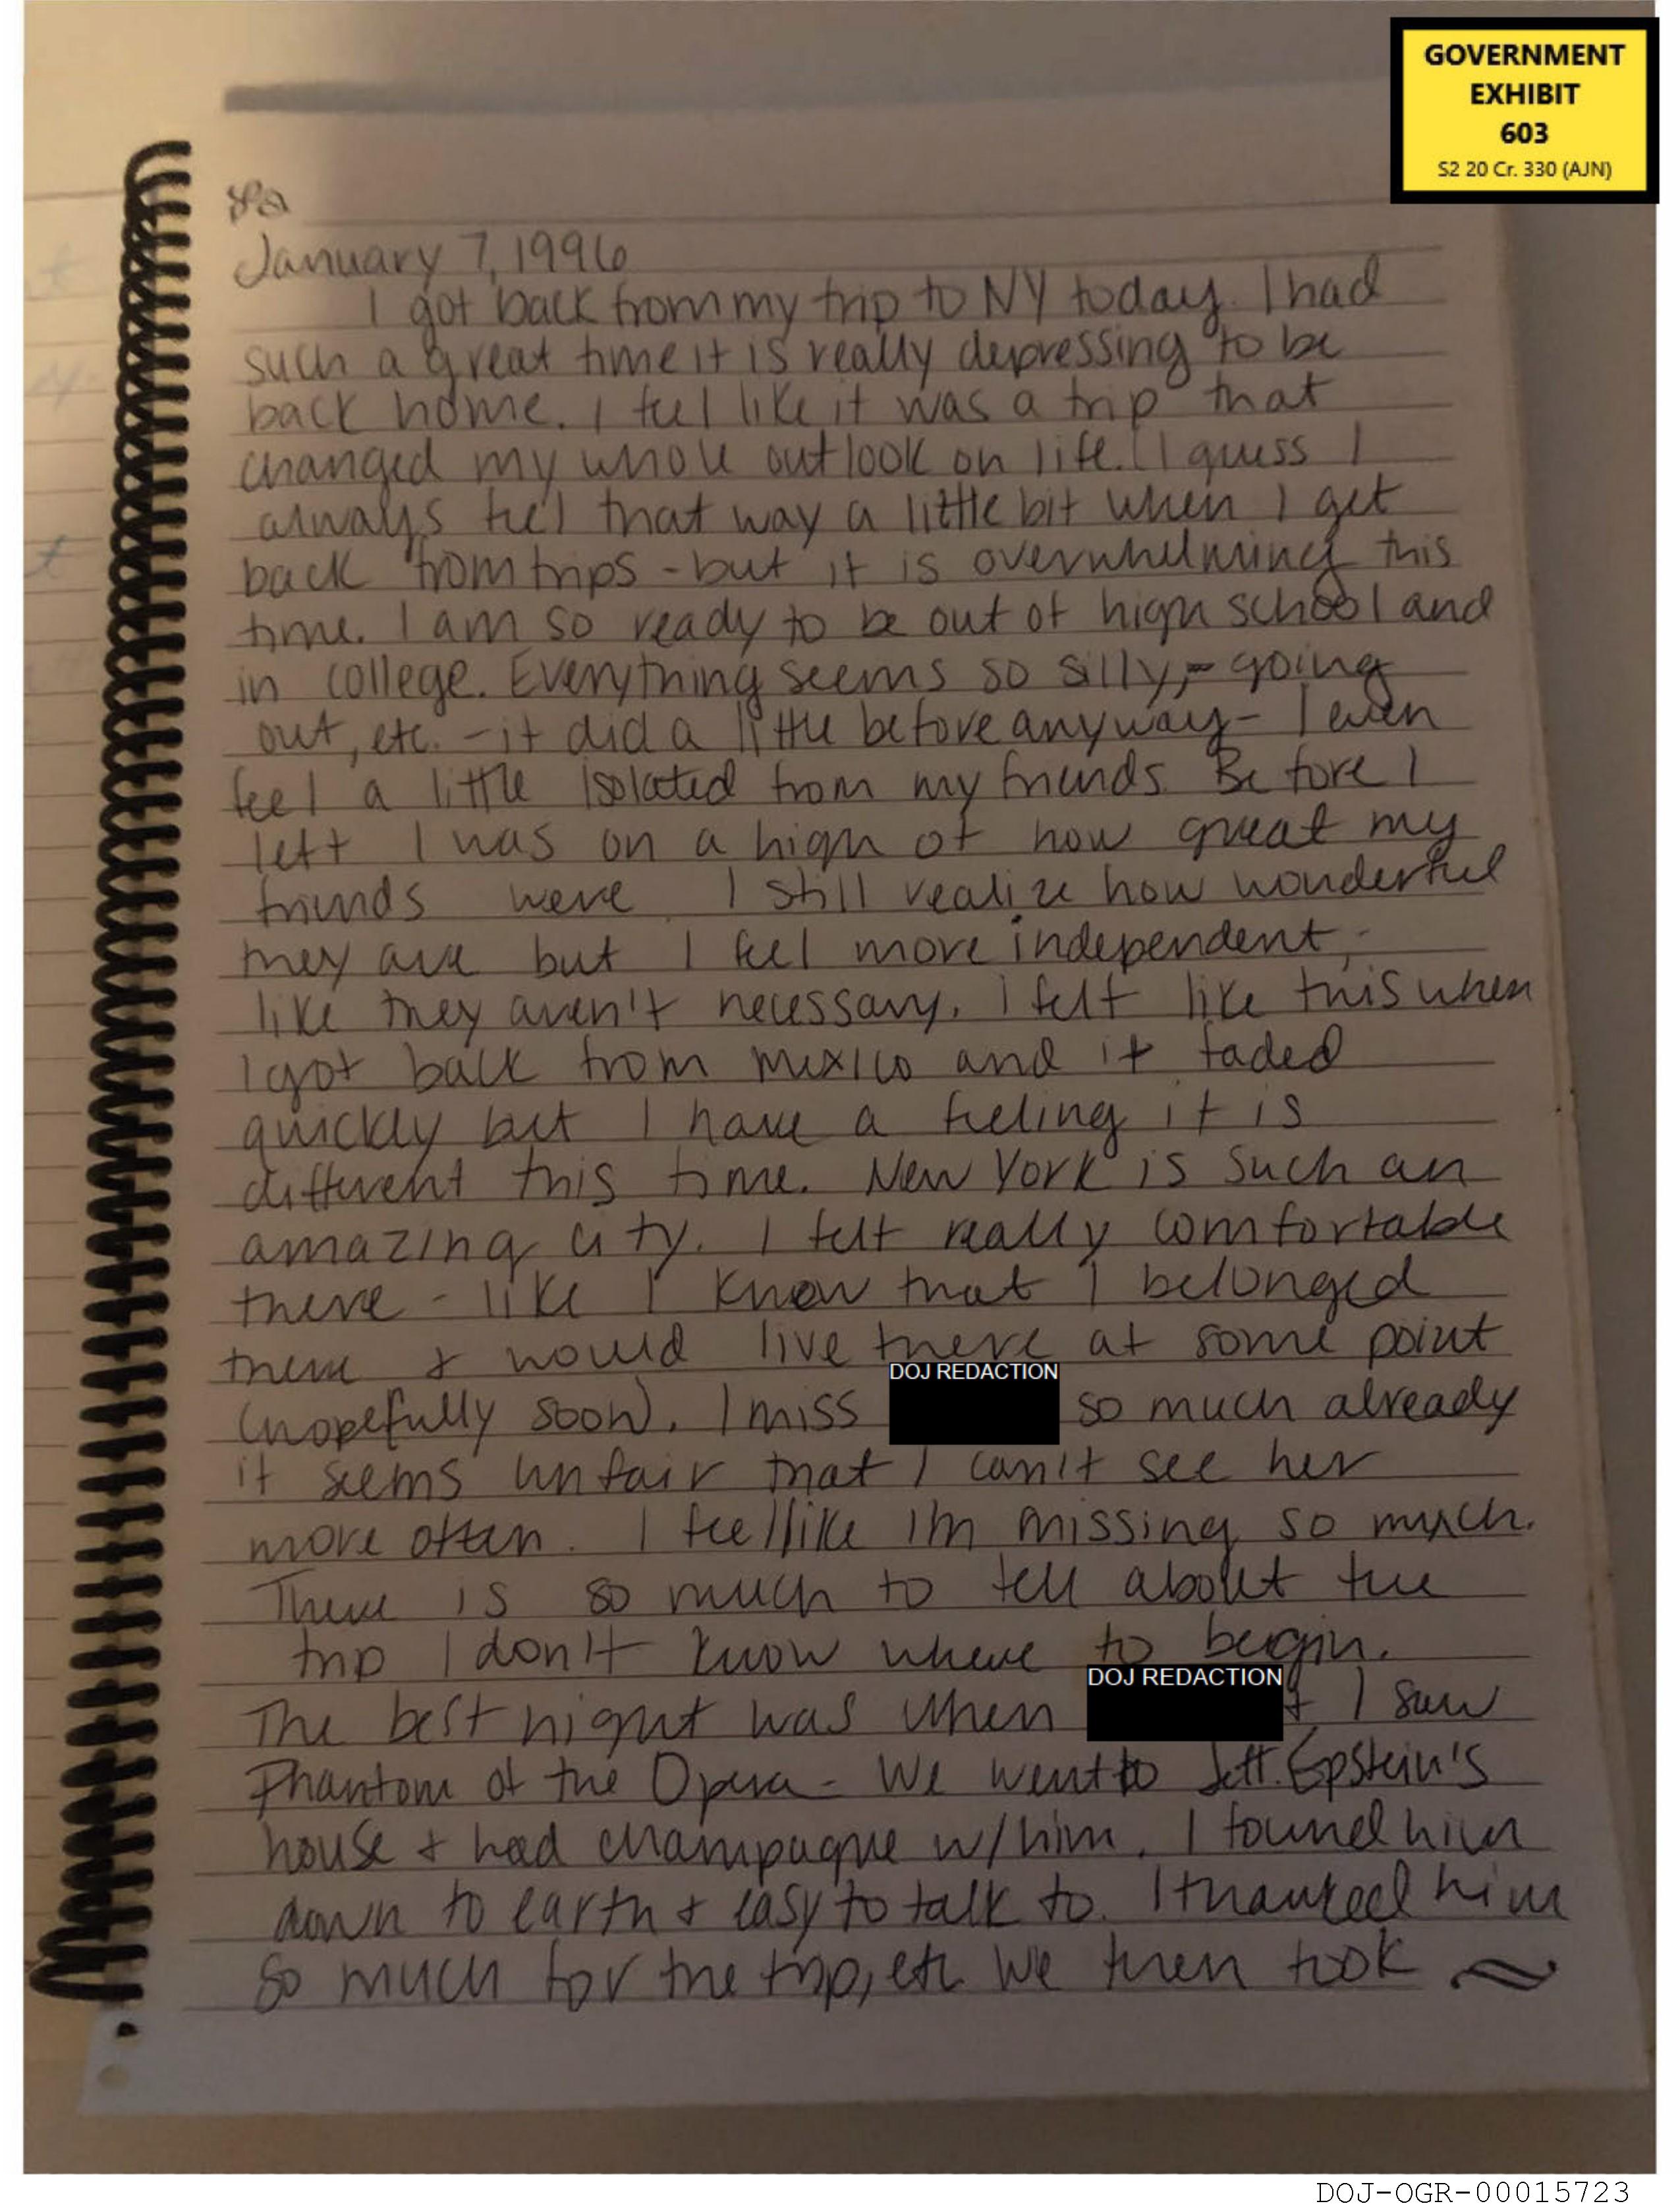 GOVERNMENT
EXHIBIT
603
S2 20 Cr. 330 (AJN)
January 7, 1996
I got back from my trip to NY today. I had
such a great time it is really depressing to be
back home. I feel like it was a trip that
changed my whole outlook on life. I guess I
always feel that way a little bit when I get
back from trips - but it is overwhelming this
time. I am so ready to be out of high school and
in college. Everything seems so silly, - going
out, etc. - it did a little before anyway - I even
feel a little isolated from my friends. Before I
left I was on a high of how great my
friends were. I still realize how wonderful
they are but I feel more independent,
like they aren't necessary. I felt like this when
I got back from Mexico and it faded
quickly but I have a feeling it is
different this time. New York is such an
amazing city. I felt really comfortable
there - like I know that I belonged
there & would live there at some point
(hopefully soon). I miss DOJ REDACTION so much already
it seems unfair that I can't see her
more often. I feel like I'm missing so much.
There is so much to tell about the
trip I don't know where to begin.
The best night was when DOJ REDACTION & I saw
Phantom of the Opera - We went to Jeff. Epstein's
house & had champagne w/ him. I found him
down to earth & easy to talk to. I thanked him
so much for the trip, etc. We then took
DOJ-OGR-00015723